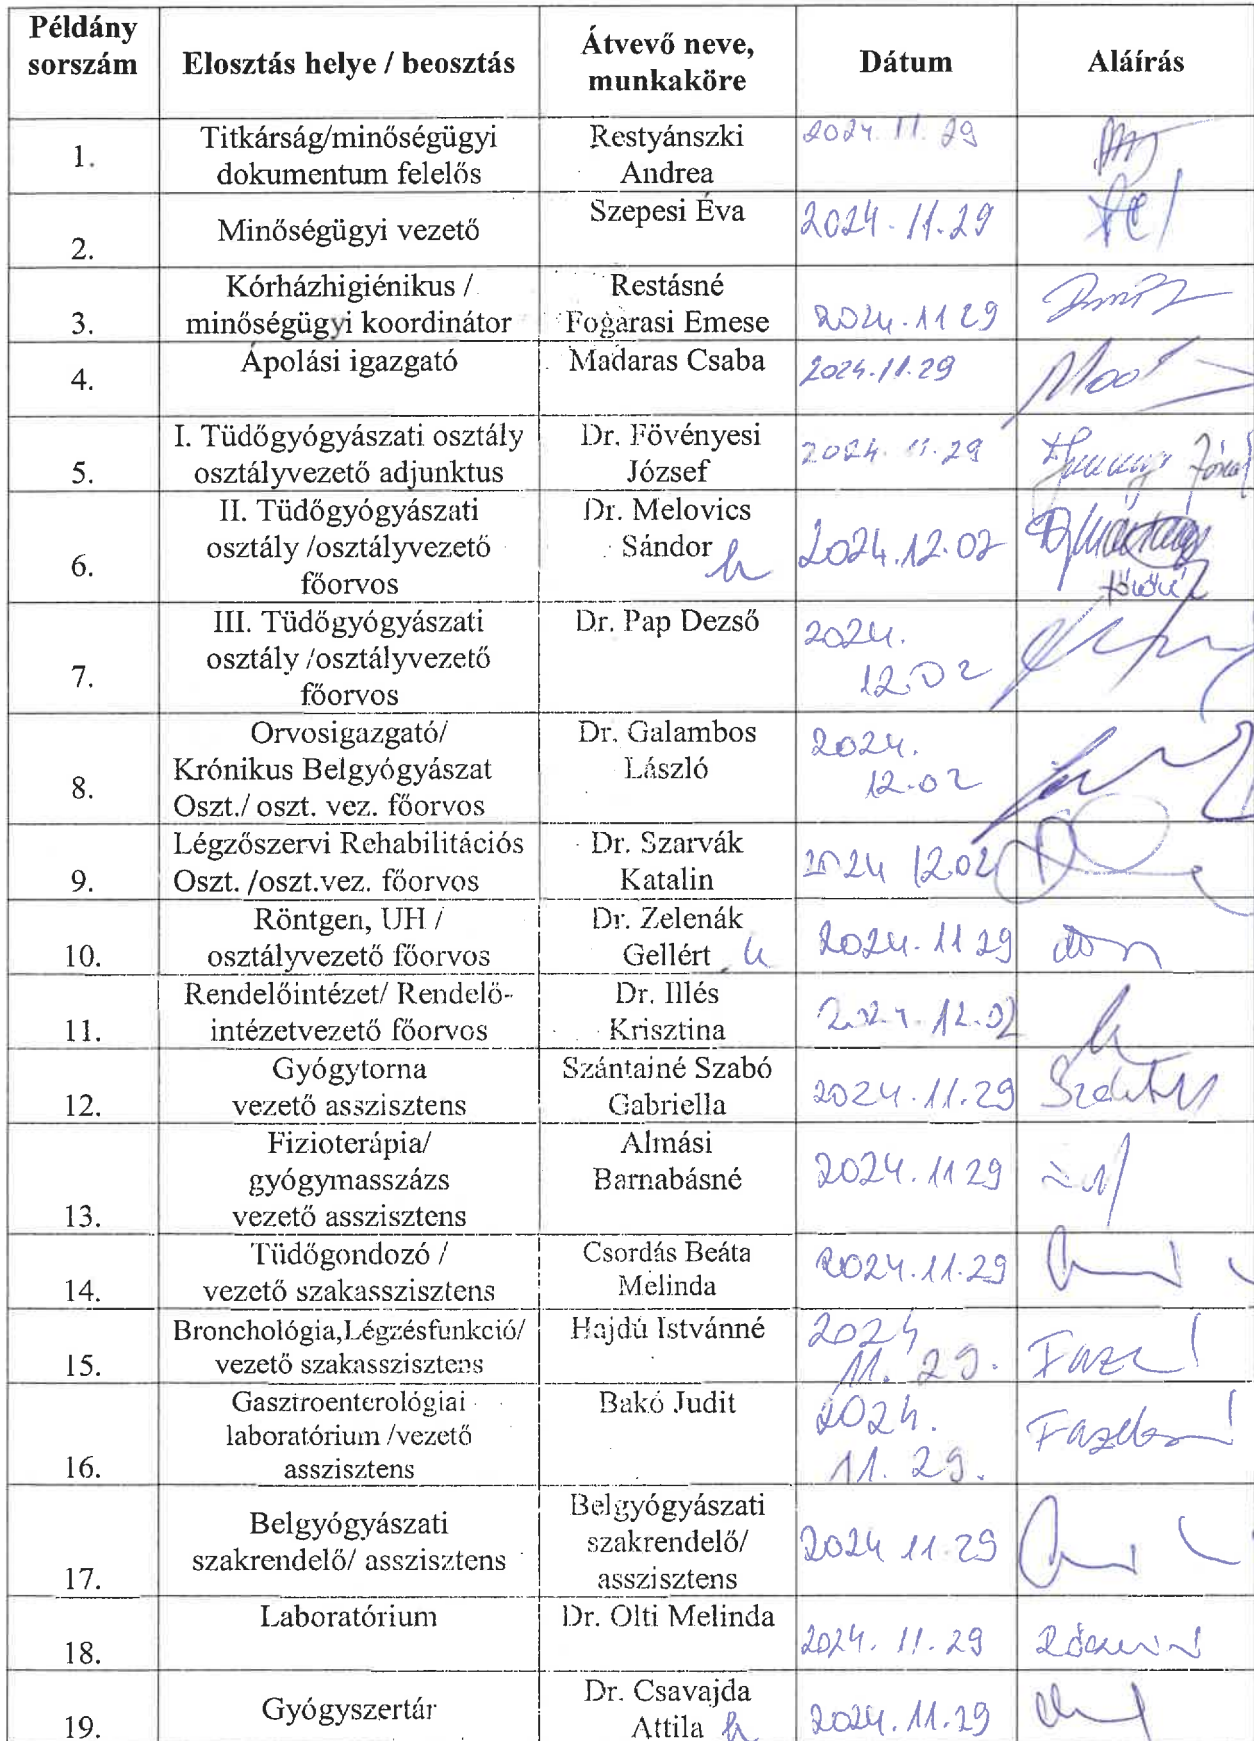 Példány sorszám | Elosztás helye / beosztás | Átvevő neve, munkaköre | Dátum | Aláírás
1. | Titkárság/minőségügyi dokumentum felelős | Restyánszki Andrea | 2024. 11. 29
2. | Minőségügyi vezető | Szepesi Éva | 2024. 11. 29
3. | Kórházhigiénikus / minőségügyi koordinátor | Restásné Fogarasi Emese | 2024. 11 29
4. | Ápolási igazgató | Madaras Csaba | 2024. 11. 29
5. | I. Tüdőgyógyászati osztály osztályvezető adjunktus | Dr. Fövényesi József | 2024. 11. 29
6. | II. Tüdőgyógyászati osztály /osztályvezető főorvos | Dr. Melovics Sándor h | 2024. 12. 02
7. | III. Tüdőgyógyászati osztály /osztályvezető főorvos | Dr. Pap Dezső | 2024. 12.02
8. | Orvosigazgató/ Krónikus Belgyógyászat Oszt./ oszt. vez. főorvos | Dr. Galambos László | 2024. 12.02
9. | Légzőszervi Rehabilitációs Oszt. /oszt.vez. főorvos | Dr. Szarvák Katalin | 2024 12.02
10. | Röntgen, UH / osztályvezető főorvos | Dr. Zelenák Gellért h | 2024. 11 29
11. | Rendelőintézet/ Rendelő- intézetvezető főorvos | Dr. Illés Krisztina | 2024. 12.02
12. | Gyógytorna vezető asszisztens | Szántainé Szabó Gabriella | 2024. 11. 29
13. | Fizioterápia/ gyógymasszázs vezető asszisztens | Almási Barnabásné | 2024. 11 29
14. | Tüdőgondozó / vezető szakasszisztens | Csordás Beáta Melinda | 2024. 11. 29
15. | Bronchológia,Légzésfunkció/ vezető szakasszisztens | Hajdú Istvánné | 2024 11. 29.
16. | Gasztroenterológiai laboratórium /vezető asszisztens | Bakó Judit | 2024. 11. 29.
17. | Belgyógyászati szakrendelő/ asszisztens | Belgyógyászati szakrendelő/ asszisztens | 2024 11. 29
18. | Laboratórium | Dr. Olti Melinda | 2024. 11. 29
19. | Gyógyszertár | Dr. Csavajda Attila h | 2024. 11. 29